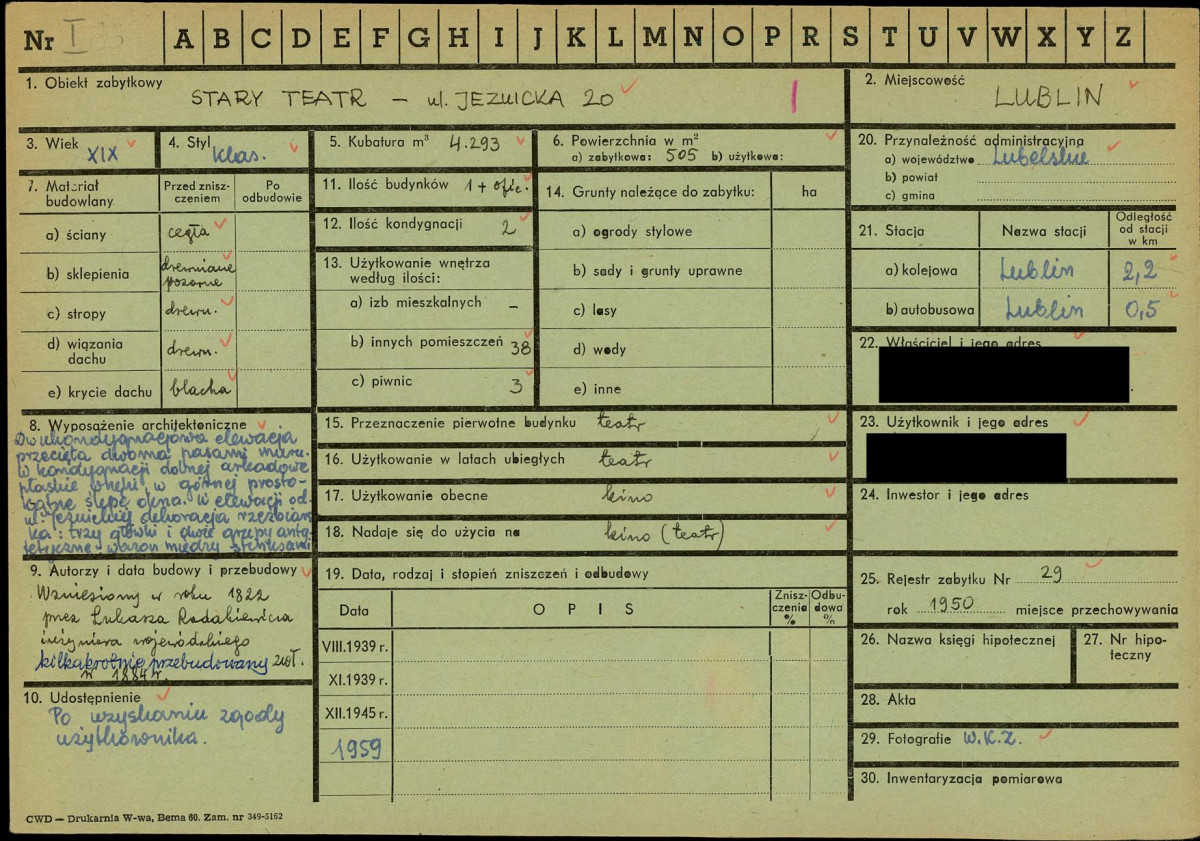 Nr I
A B C D E F G H I J K L M N O P R S T U V W X Y Z
1. Obiekt zabytkowy
STARY TEATR – ul. JEZUICKA 20
2. Miejscowość
LUBLIN
3. Wiek XIX
4. Styl klas.
5. Kubatura m³ 4.293
6. Powierzchnia w m²
a) zabytkowa: 505 b) użytkowa:
7. Materiał budowlany
Przed zniszczeniem
Po odbudowie
a) ściany cegła
b) sklepienia drewniane pozorne
c) stropy drewn.
d) wiązania dachu drewn.
e) krycie dachu blacha
8. Wyposażenie architektoniczne
Dwukondygnacjowa elewacja
przecięta dwoma pasami muru.
W kondygnacji dolnej arkadowe
płaskie wnęki, w górnej prosto-
kątne ślepe okna. W elewacji od
ul. Jezuickiej dekoracja rzeźbiar-
ka: trzy główki i dwie grupy anty-
tetyczne – wazon między sfinksami
9. Autorzy i data budowy i przebudowy
Wzniesiony w roku 1822
przez Łukasza Rodakiewicza
inżyniera wojewódzkiego
kilkakrotnie przebudowany
w 1884 r.
10. Udostępnienie
Po uzyskaniu zgody
użytkownika.
11. Ilość budynków 1 + ofic.
12. Ilość kondygnacji 2
13. Użytkowanie wnętrza
według ilości:
a) izb mieszkalnych –
b) innych pomieszczeń 38
c) piwnic 3
14. Grunty należące do zabytku:
ha
a) ogrody stylowe
b) sady i grunty uprawne
c) lasy
d) wody
e) inne
15. Przeznaczenie pierwotne budynku teatr
16. Użytkowanie w latach ubiegłych teatr
17. Użytkowanie obecne kino
18. Nadaje się do użycia na kino (teatr)
19. Data, rodzaj i stopień zniszczeń i odbudowy
Data
OPIS
Zniszczenia %
Odbudowa %
VIII.1939 r.
XI.1939 r.
XII.1945 r.
1959
20. Przynależność administracyjna
a) województwo Lubelskie
b) powiat
c) gmina
21. Stacja
Nazwa stacji
Odległość od stacji w km
a) kolejowa Lublin 2,2
b) autobusowa Lublin 0,5
22. Właściciel i jego adres
23. Użytkownik i jego adres
24. Inwestor i jego adres
25. Rejestr zabytku Nr 29
rok 1950 miejsce przechowywania
26. Nazwa księgi hipotecznej
27. Nr hipoteczny
28. Akta
29. Fotografie W.K.Z.
30. Inwentaryzacja pomiarowa
CWD — Drukarnia W-wa, Bema 60. Zam. nr 349-5162